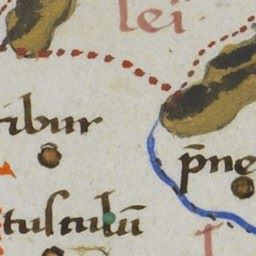 lei
tibur
p̄ne
tusculū